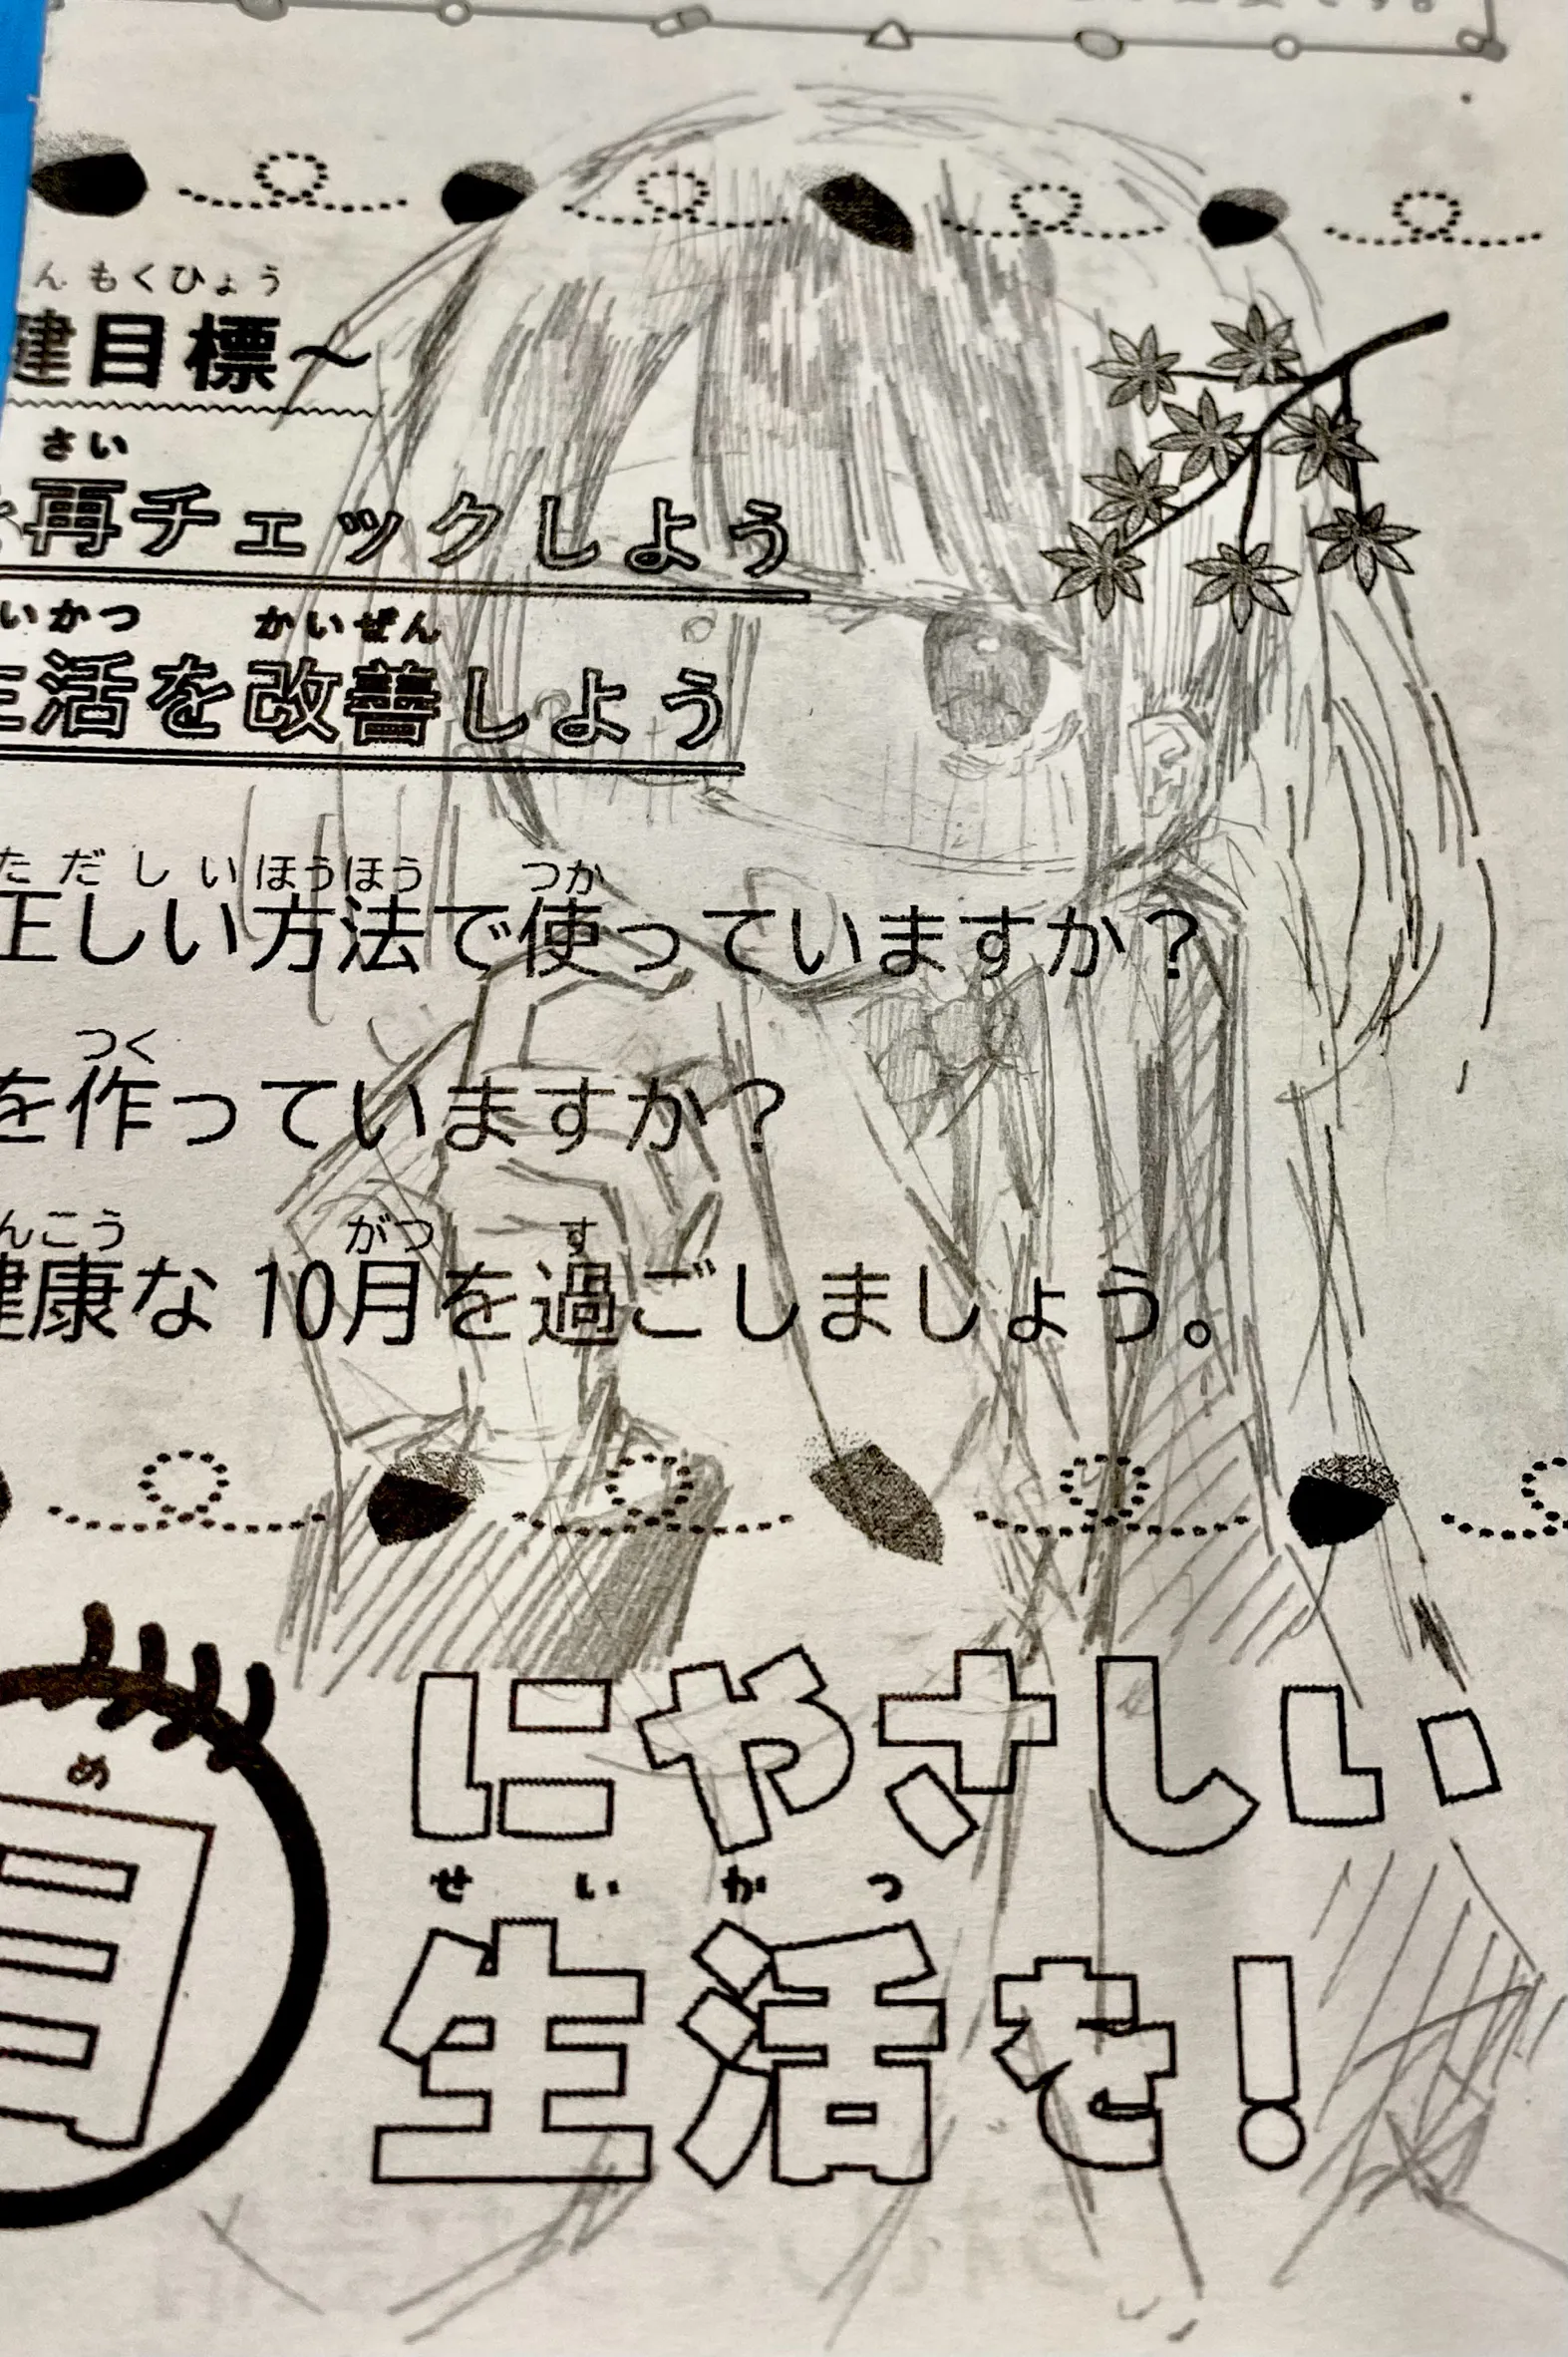 んもくひょう
健目標～
さい
再チェックしよう
いかつ かいぜん
生活を改善しよう
ただしいほうほう つか
正しい方法で使っていますか？
つく
を作っていますか？
んこう がつ す
健康な10月を過ごしましょう。
め
目
にやさしい
せいかつ
生活を！